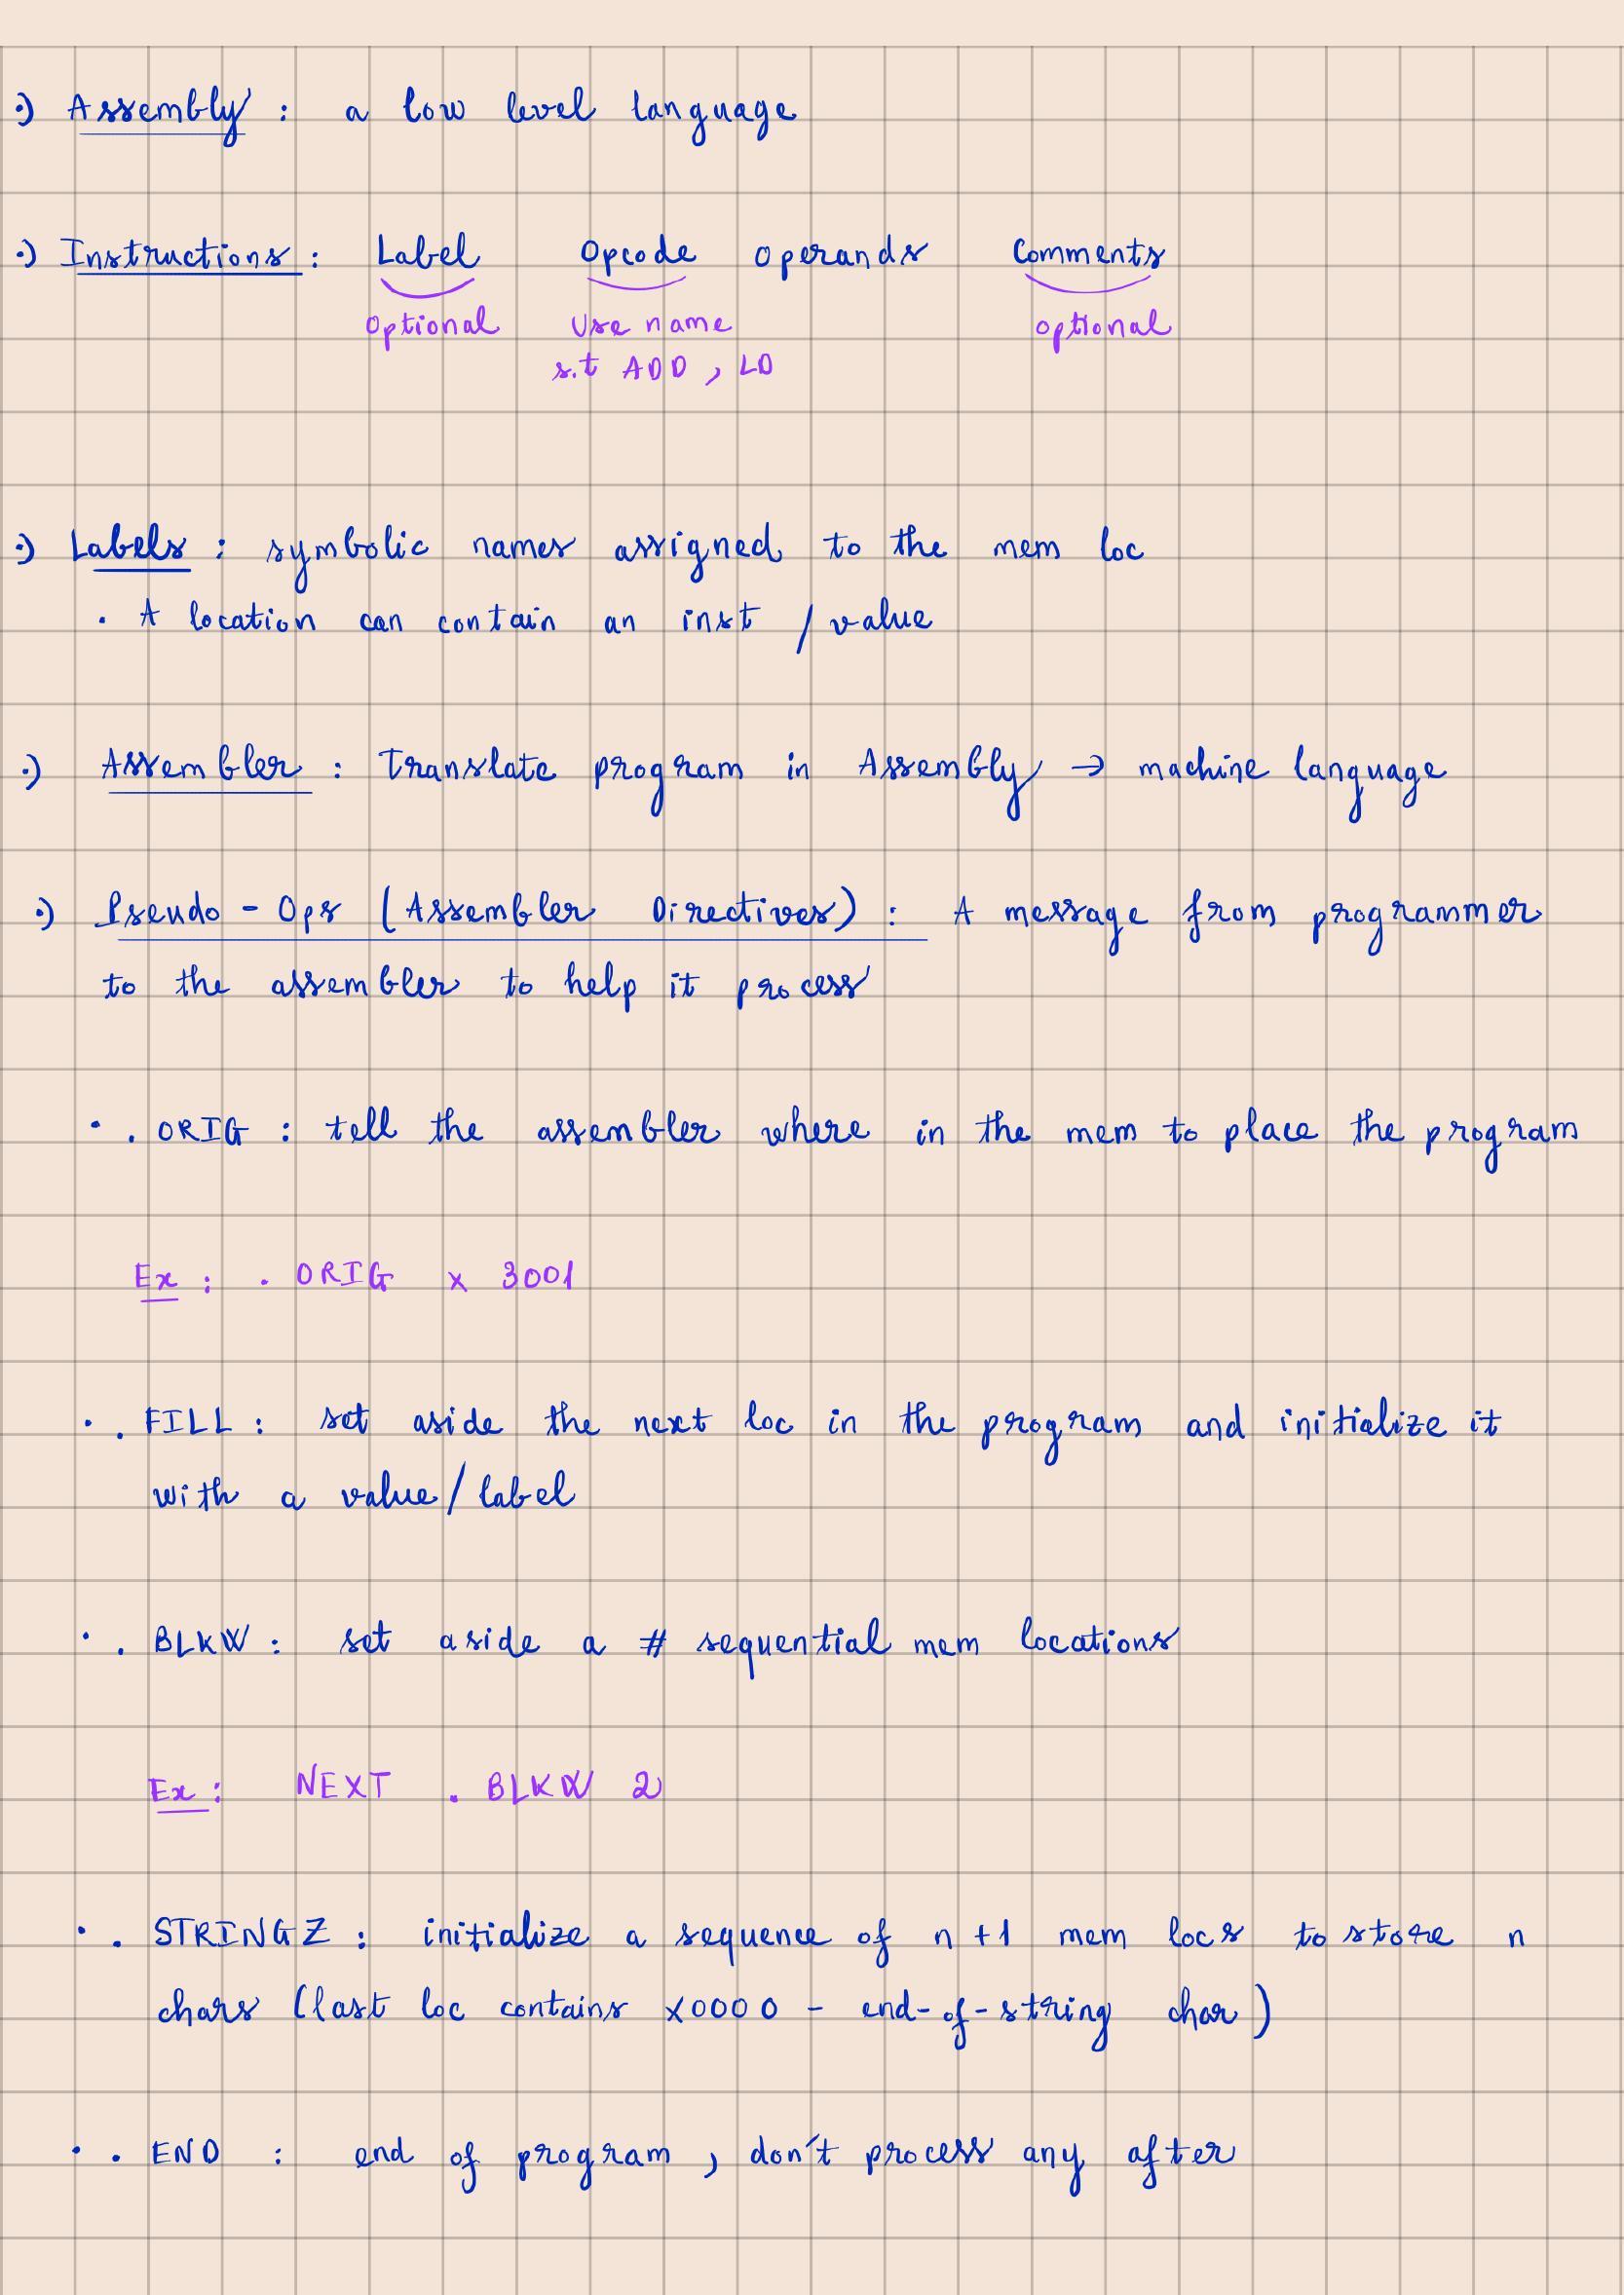 :) Assembly : a low level language
:) Instructions : Label Opcode operands Comments
Optional Use name optional
s.t ADD , LD
:) Labels : symbolic names assigned to the mem loc
• A location can contain an inst / value
:) Assembler : Translate program in Assembly → machine language
:) Pseudo - Ops (Assembler Directives) : A message from programmer
to the assembler to help it process
• . ORIG : tell the assembler where in the mem to place the program
Ex : . ORIG x 3001
• . FILL : set aside the next loc in the program and initialize it
with a value/label
• . BLKW : set aside a # sequential mem locations
Ex : NEXT . BLKW 2
• . STRINGZ : initialize a sequence of n +1 mem locs to store n
chars (last loc contains x0000 - end-of-string char)
• . END : end of program , don't process any after